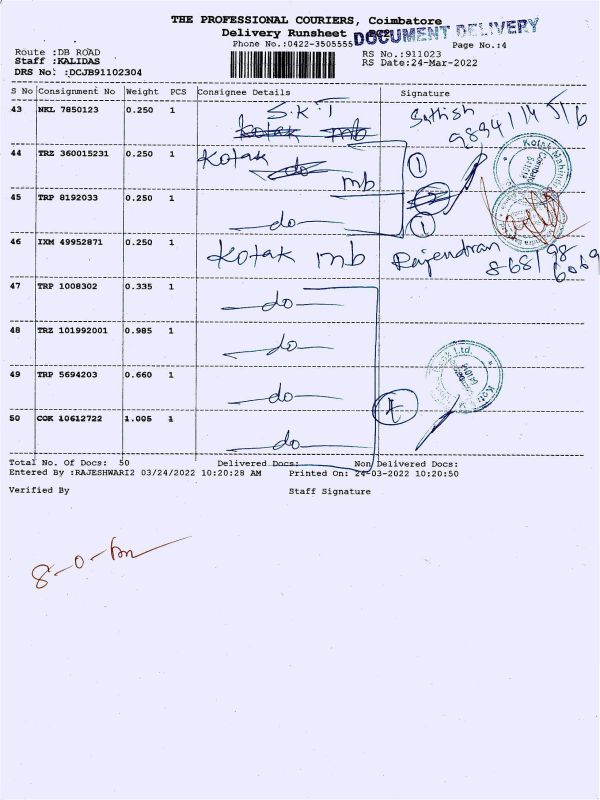 THE PROFESSIONAL COURIERS, Coimbatore
Delivery Runsheet
DOCUMENT DELIVERY
Phone No.:0422-3505555
Page No.:4
Route :DB ROAD
RS No.:911023
Staff :KALIDAS
RS Date:24-Mar-2022
DRS No: :DCJB91102304
S No Consignment No Weight PCS Consignee Details Signature
43 NKL 7850123 0.250 1 S.K.T Sathish
Kotak mb
44 TRZ 360015231 0.250 1 Kotak do mb 1
45 TRP 8192033 0.250 1 do 1
46 IXM 49952871 0.250 1 Kotak mb Rajendran
47 TRP 1008302 0.335 1 do
48 TRZ 101992001 0.985 1 do
49 TRP 5694203 0.660 1 do
50 COK 10612722 1.005 1 do
Total No. Of Docs: 50 Delivered Docs: Non Delivered Docs:
Entered By :RAJESHWARI2 03/24/2022 10:20:28 AM Printed On: 24-03-2022 10:20:50
Verified By Staff Signature